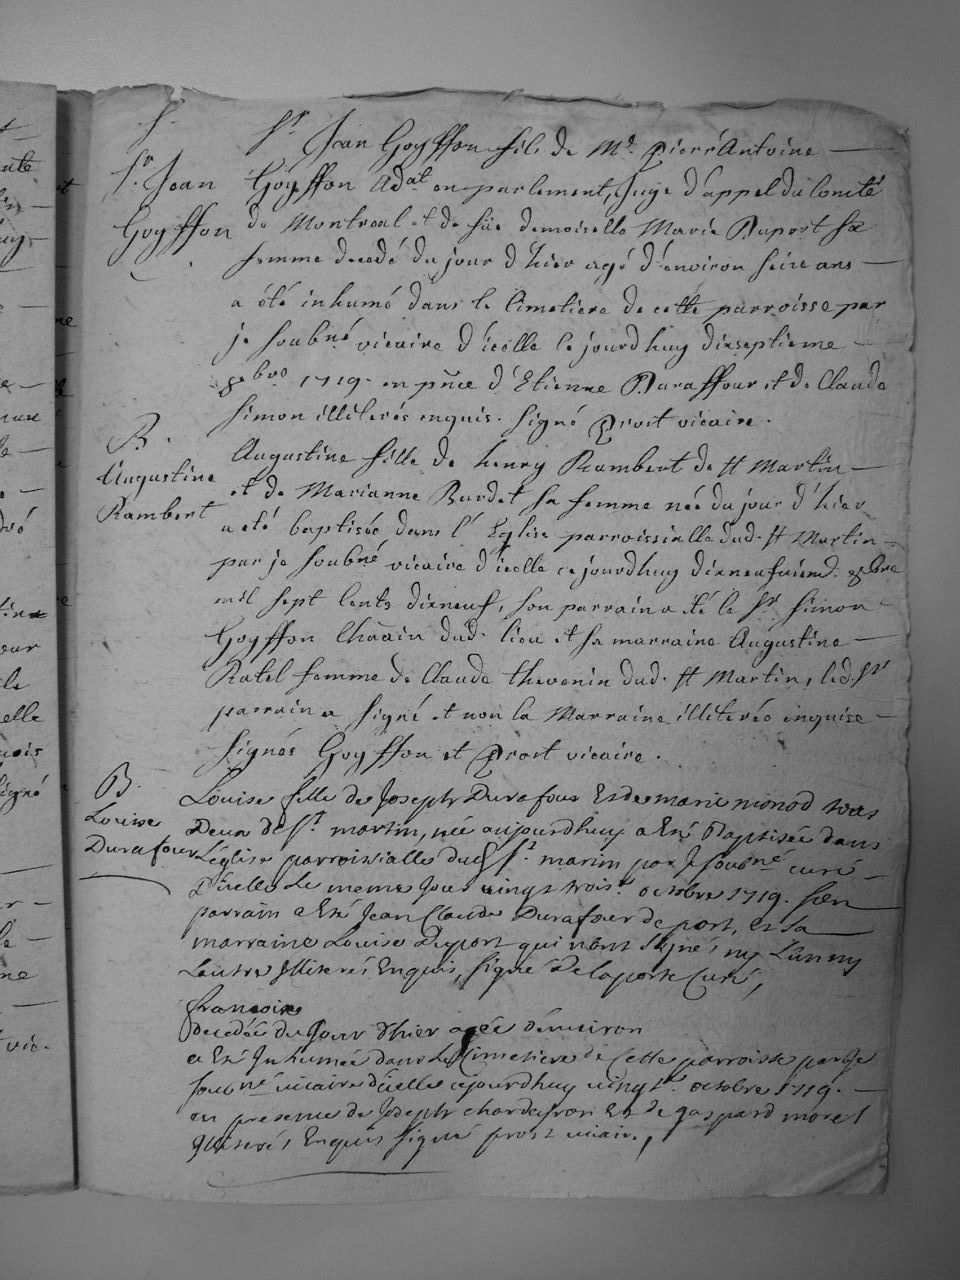 S.
Sr. Jean
Goyffon
Sr. Jean Goyffon fils de Mr. Pierre Antoine
Goyffon Adat en parlement, Juge d'appel du Comté
de Montreal et de füe demoiselle Marie Duport sa
femme decedé du jour d'hier agé d'environ seize ans
a été inhumé dans le Cimetiere de cette parroisse par
je soubné vicaire d'icelle le jourdhuy dixseptieme
8bre 1719. en pnce d'Etienne Duraffour et de Claude
Simon illiterés enquis. Signé Prost vicaire.
B.
Augustine
Rambert
Augustine fille de henry Rambert de St Martin
et de Marianne Burdet sa femme née du jour d'hier
a eté baptisée dans l'Eglise parroissialle dud. St Martin
par je soubné vicaire d'icelle cejourdhuy dixneufviem. 8bre
mil sept Cents dixneuf, son parrain a eté le Sr Simon
Goyffon Chãain dud. lieu et sa marraine Augustine
Ratel femme de Claude thevenin dud. St Martin, led. Sr
parrain a signé et non la Marraine illiterée enquise
Signés Goyffon et Prost vicaire.
B.
Louise
Durafour
Louise fille de Joseph Durafour Et de marie monod
de St. martin, née aujourdhuy a Eté Baptisée dans
L'église parroissialle dud St. martin par Je soubné curé
D'icelle Le meme Jour vingt trois. octobre 1719. son
parrain a Eté Jean Claude Durafour de port, et sa
marraine Louise Duport qui n'ont signés ny L'un ny
Lautre Illiterés Enquis, signé Delaporte Curé,
francoise
decedée du Jour d'hier agée d'environ
a Eté Inhumée dans Le Cimetiere de Cette parroisse par Je
soubné vicaire d'icelle cejourdhuy vingt. octobre 1719.
en presence de Joseph chardeyron Et de gaspard morel
Illiterés Enquis signé prost vicair.,